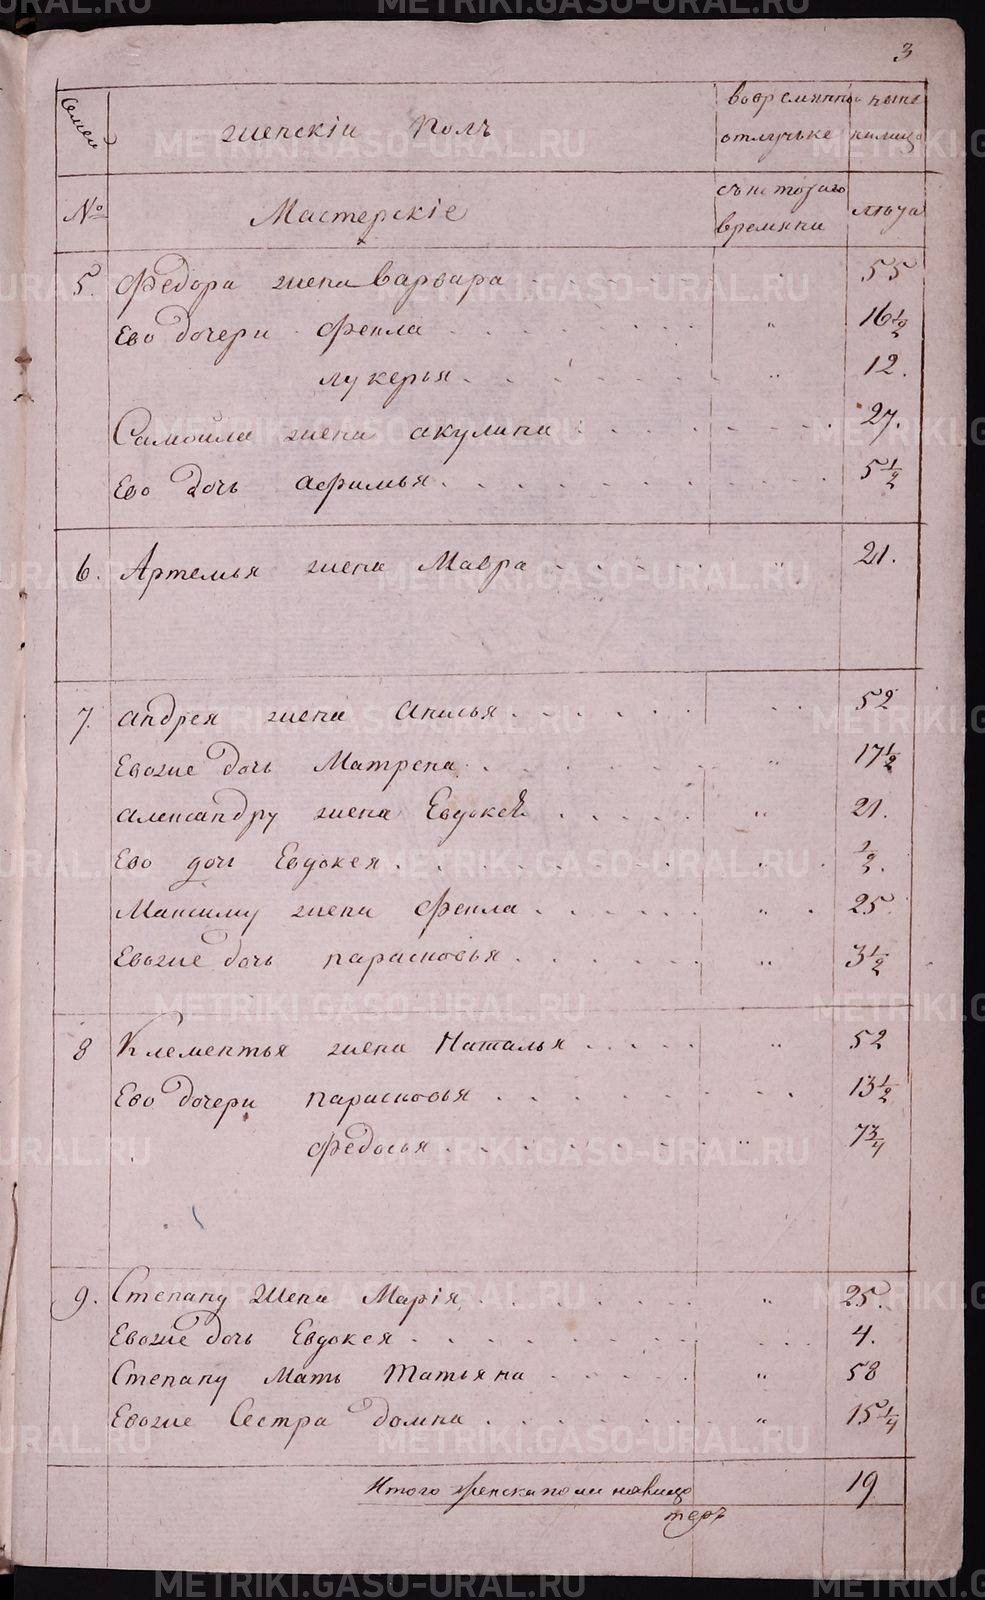 3
семей женскій полъ вовремянно ныне
отлучьке налицо
№ Мастерскіе
съ котораго
времяни
лѣта
5. Федора жена варвара 55
Ево дочери Фекла 16 1/2
лукерья 12.
Самойла жена акулина 27.
Ево дочь афимья 5 1/2
6. Артемья жена Мавра 21.
7. андрея жена анисья 52
Евоже дочь Матрена 17 1/2
александру жена Евдокея 21.
Ево дочь Евдокея 1/2.
Максиму жена Фекла 25
Евоже дочь парасковья 3 1/2
8 Клементья жена Наталья 52
Ево дочери парасковья 13 1/2
федосья 7 3/4
9. Степану жена Марія 25.
Евоже дочь Евдокея 4.
Степану Мать Татьяна 58
Евоже Сестра домна 15 1/4
Итого женска пола налицо 19
METRIKI.GASO-URAL.RU